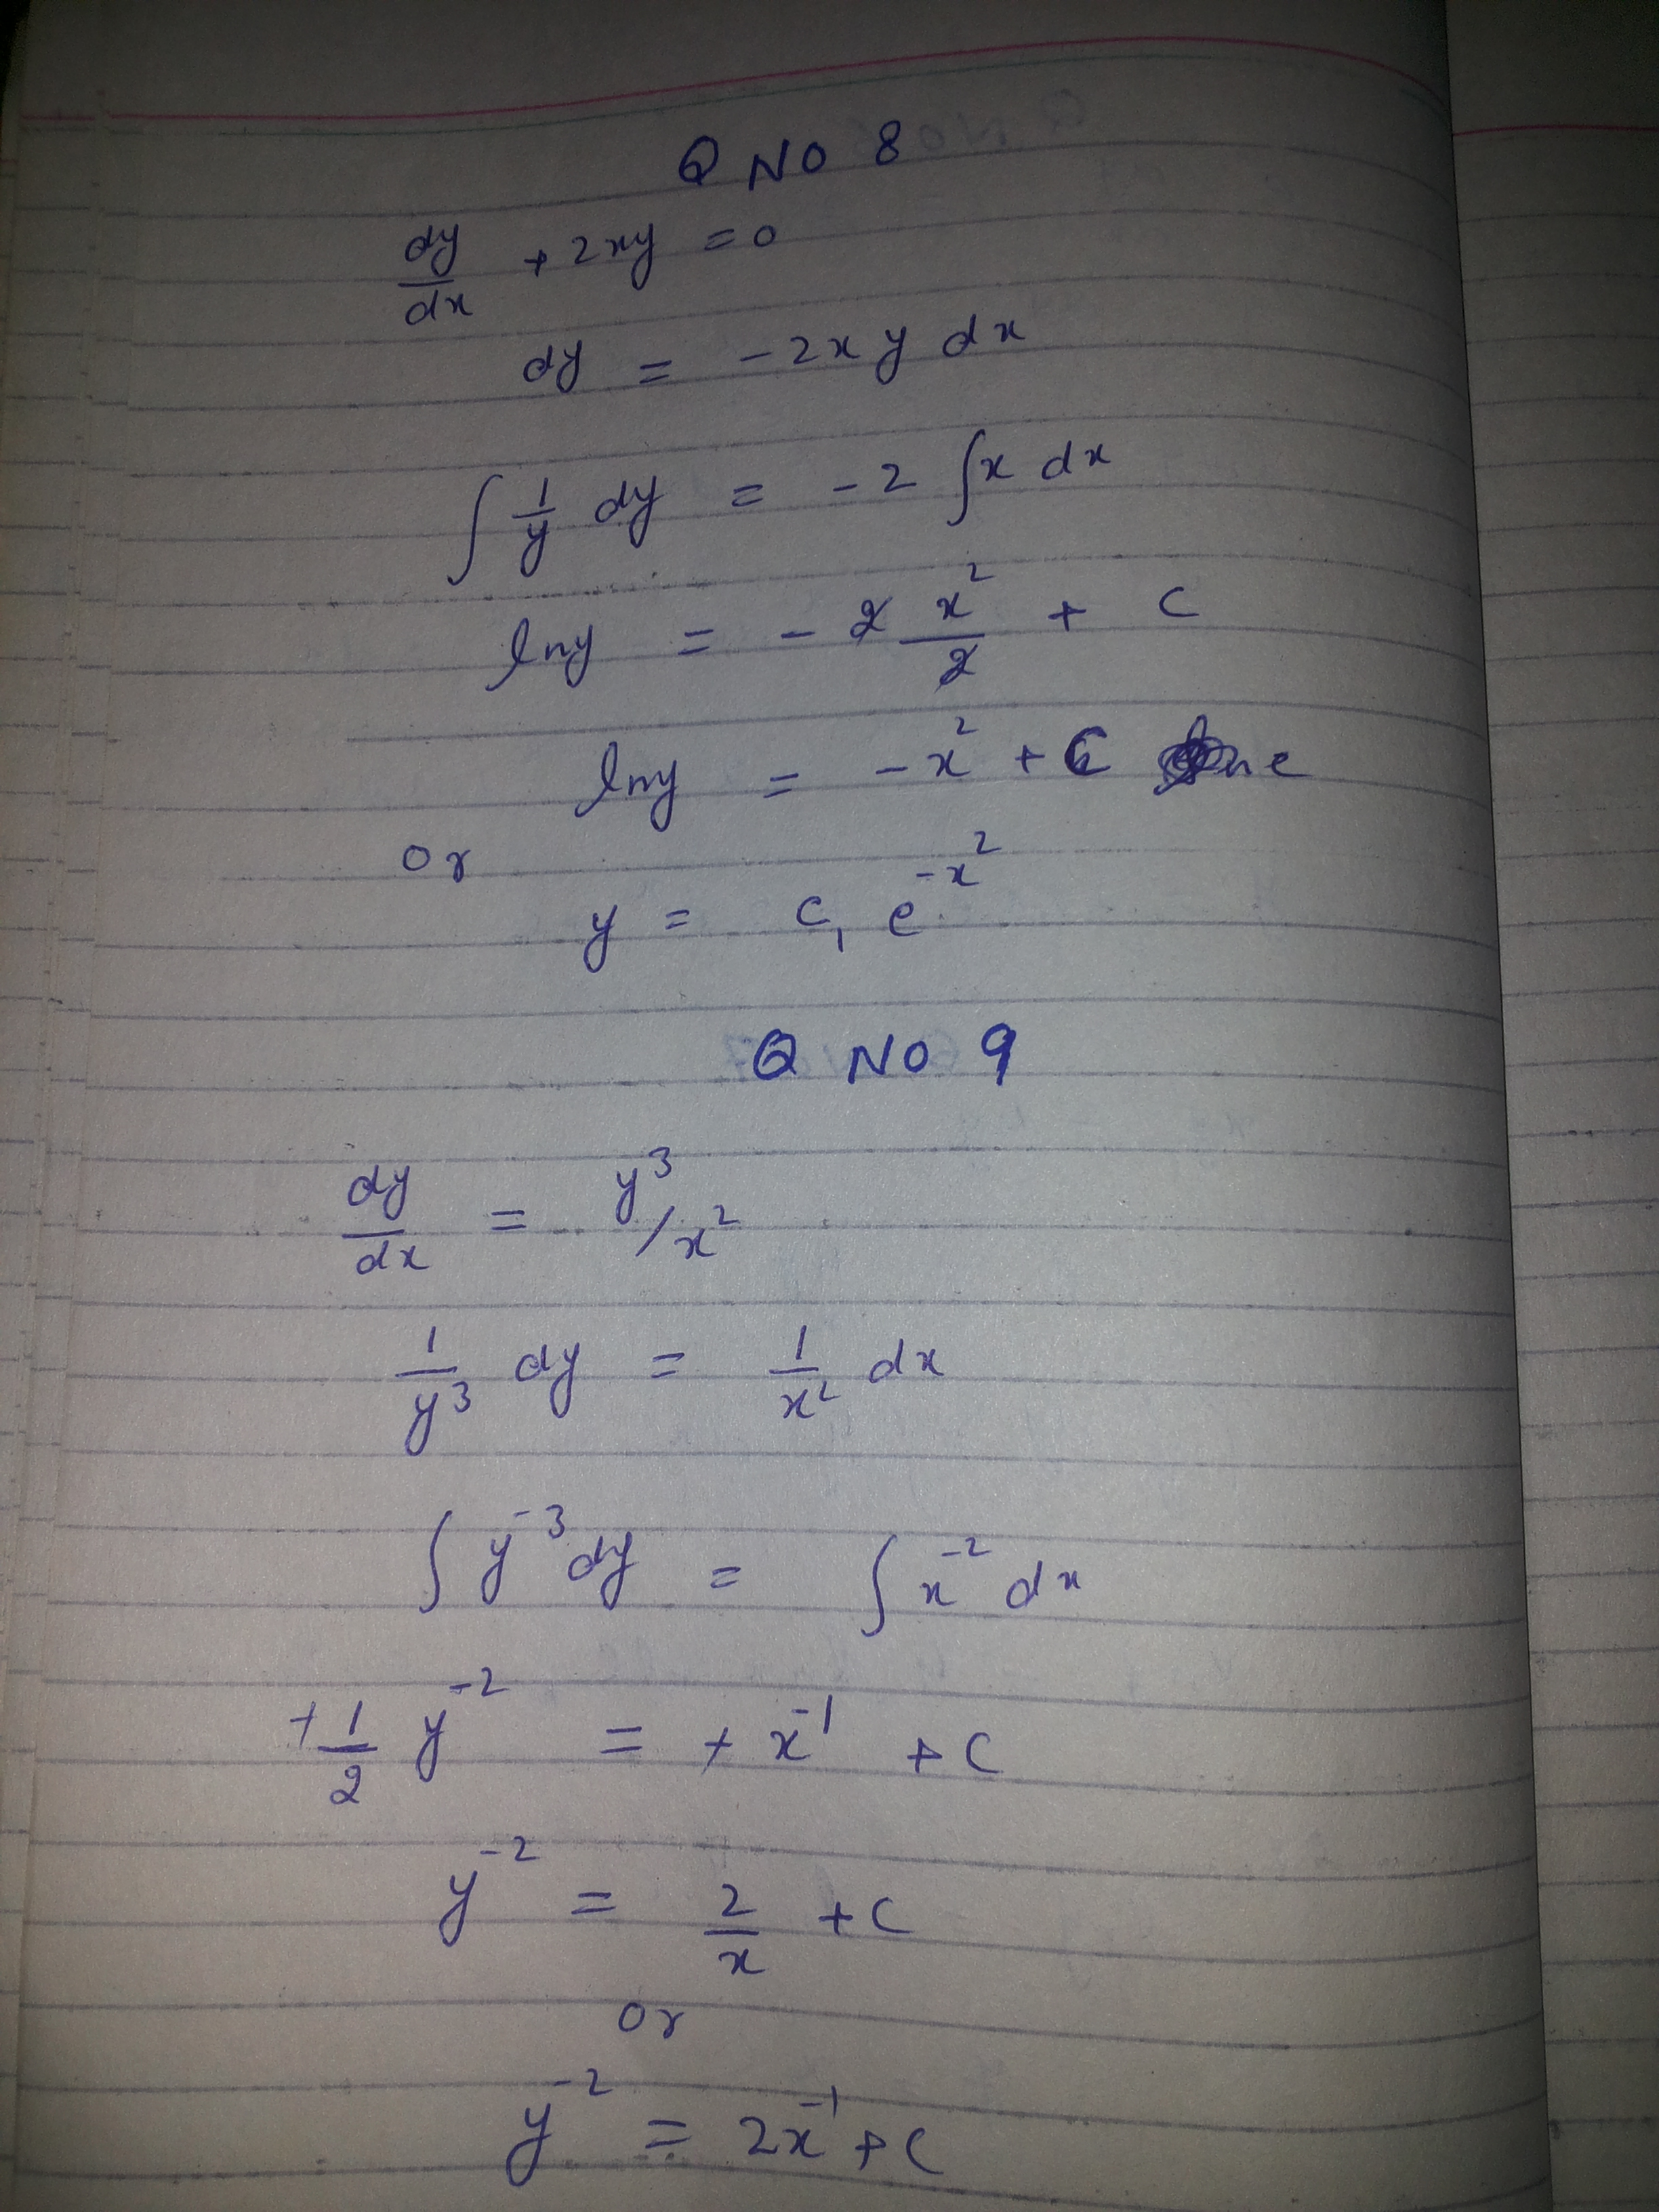 Q NO 8
dy/dx + 2xy = 0
dy = -2xy dx
∫ 1/y dy = -2 ∫x dx
lny = -2 x²/2 + C
lny = -x² + C
or
y = C₁ e^-x²
Q NO 9
dy/dx = y³/x²
1/y³ dy = 1/x² dx
∫ y⁻³ dy = ∫ x⁻² dx
+1/2 y⁻² = + x⁻¹ + C
y⁻² = 2/x + C
or
y⁻² = 2x⁻¹ + C